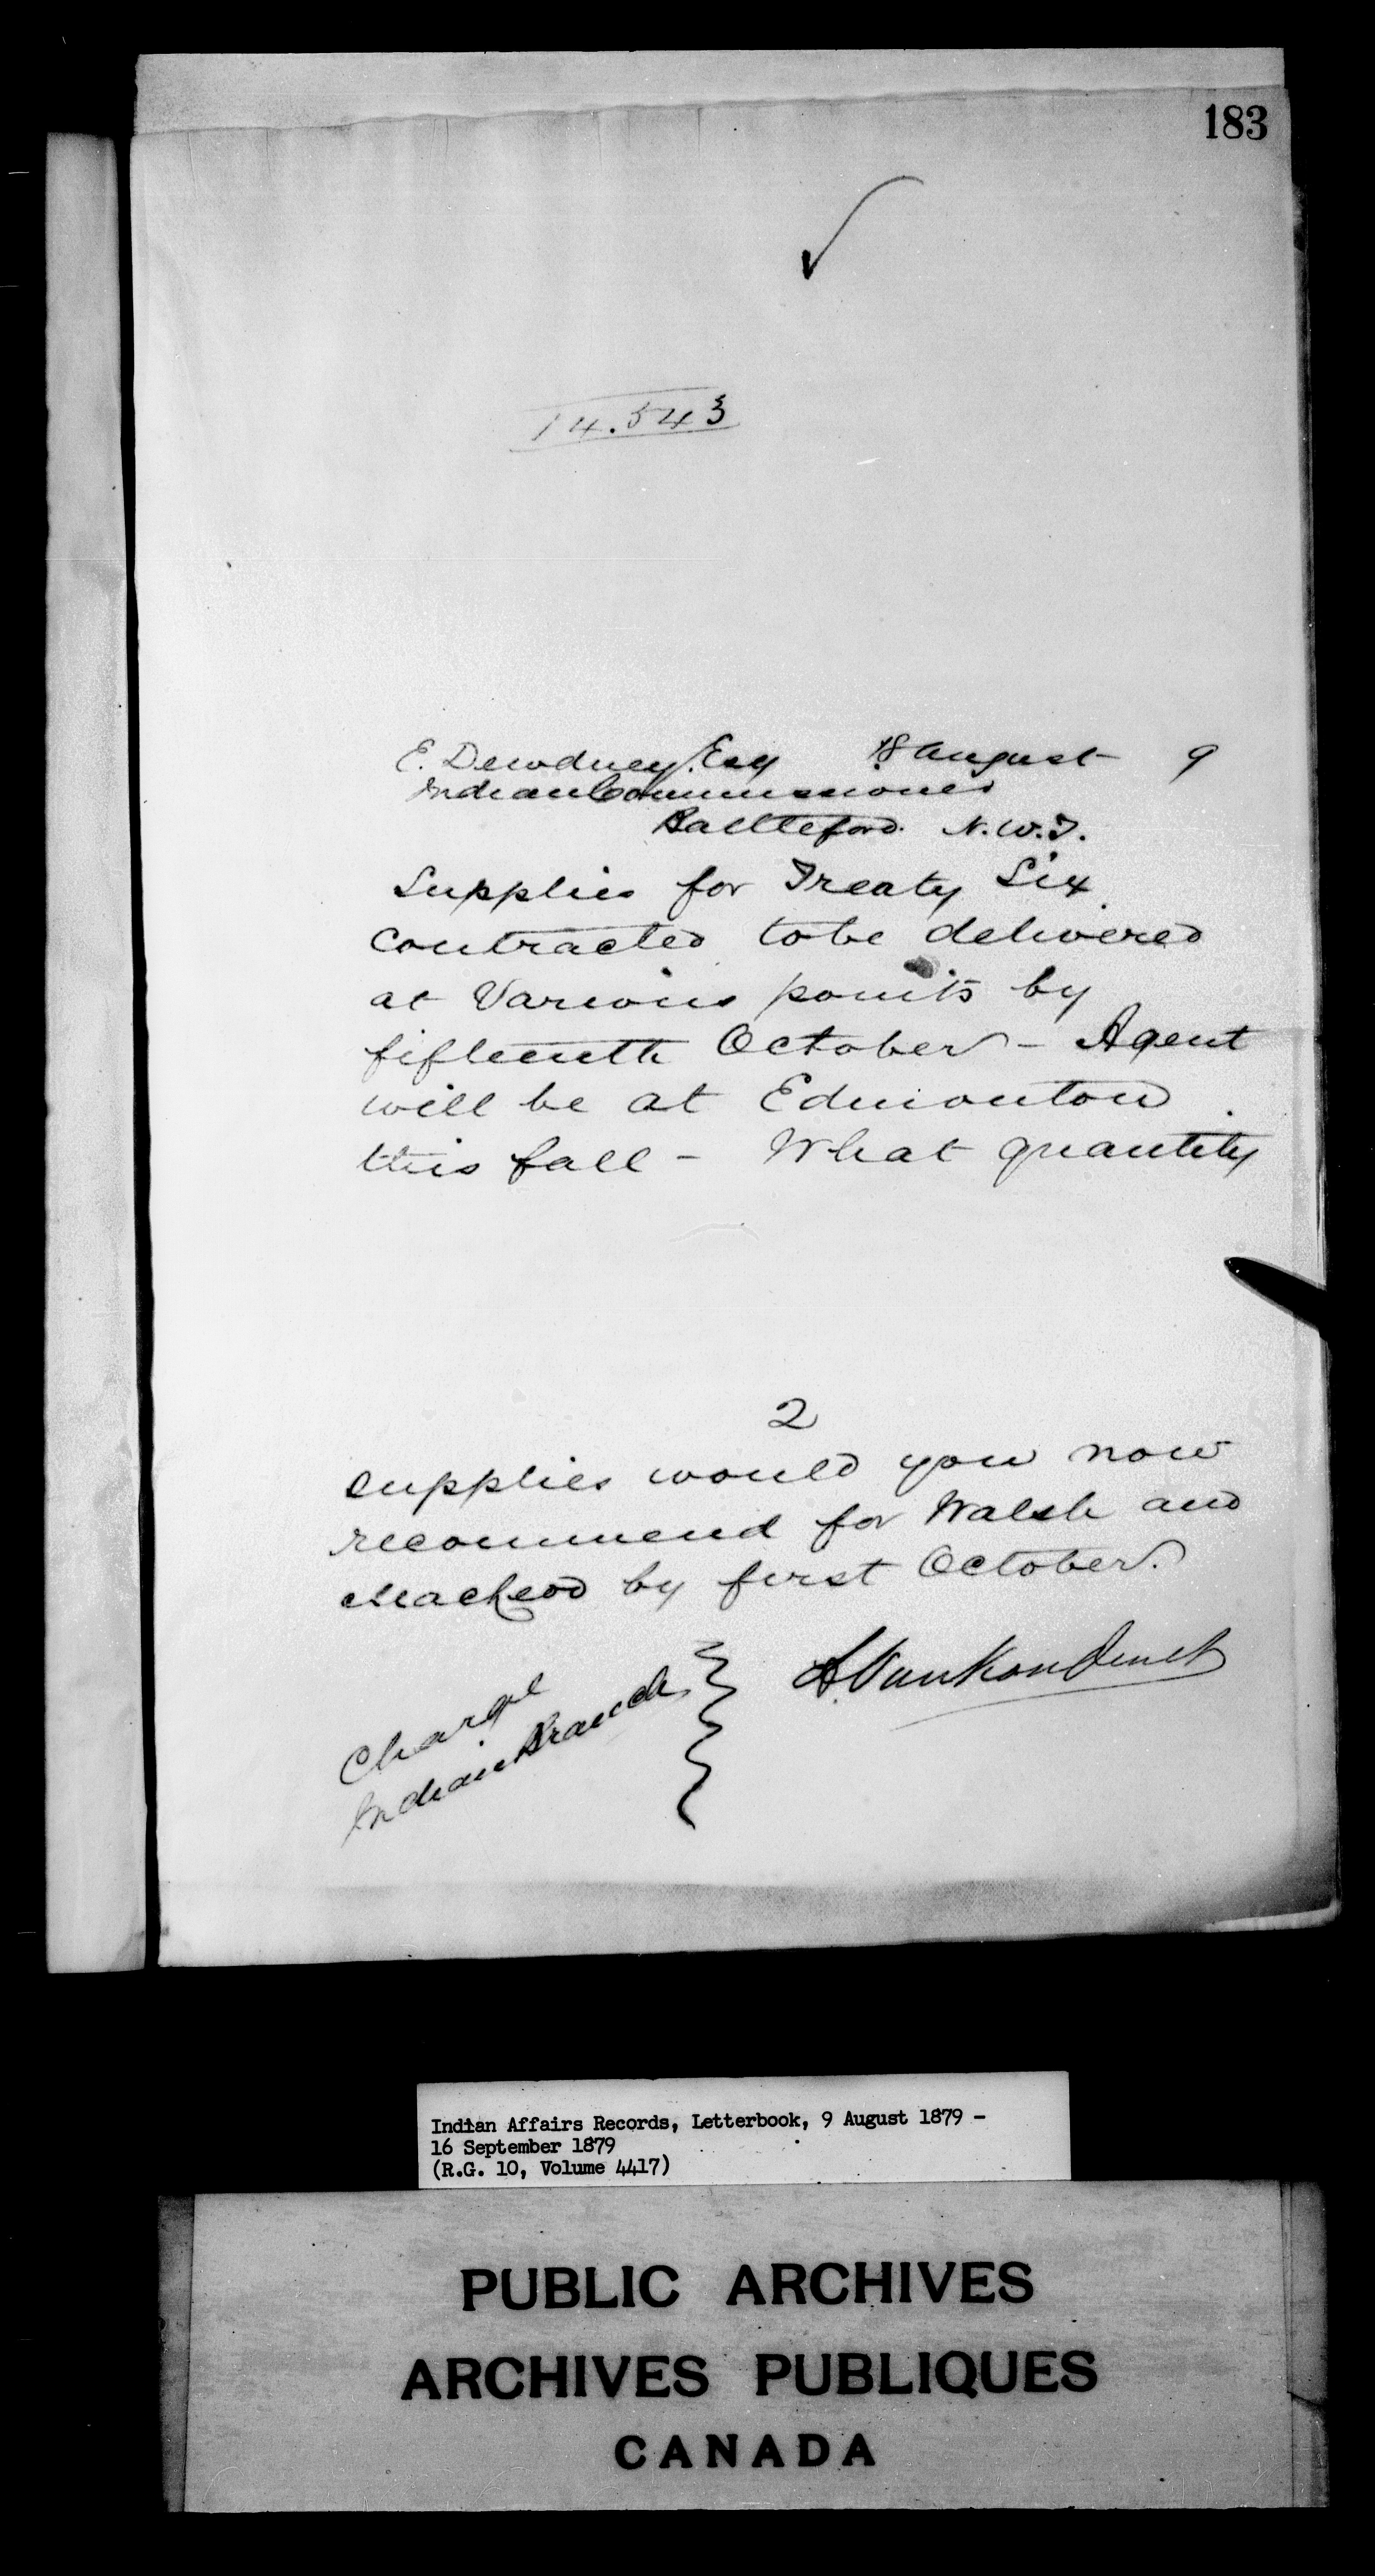 183
14.543
E. Dewdney, Esq 18 August 9
Indian Commissioner
Battleford. N.W.T.
Supplies for Treaty Six
contracted to be delivered
at various points by
fifteenth October - Agent
will be at Edmonton
this fall - What quantity
2
supplies would you now
recommend for Walsh and
MacLeod by first October.
L. VanKoughnet
Charge
Indian Branch
Indian Affairs Records, Letterbook, 9 August 1879 -
16 September 1879
(R.G. 10, Volume 4417)
PUBLIC ARCHIVES
ARCHIVES PUBLIQUES
CANADA